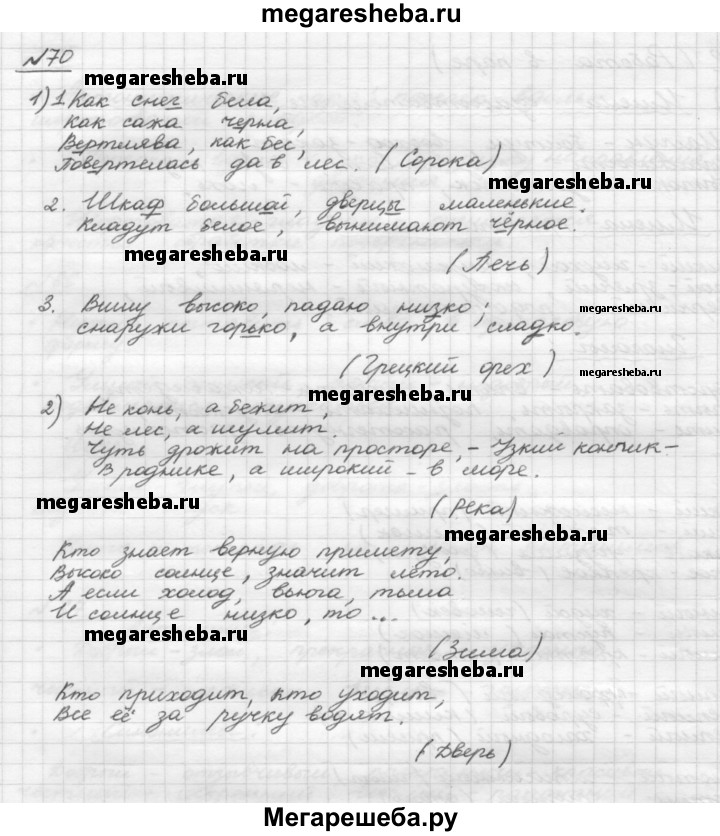 megaresheba.ru
№70
megaresheba.ru
1) 1. Как снег бела,
Как сажа черна,
Вертлява, как бес,
Повертелась да в лес. (Сорока)
megaresheba.ru
2. Шкаф большой, дверцы маленькие.
Кладут белое, вынимают чёрное.
megaresheba.ru
(Печь)
3. Вишу высоко, падаю низко;
megaresheba.ru
снаружи горько, а внутри сладко.
(Грецкий орех)
megaresheba.ru
megaresheba.ru
2) Не конь, а бежит,
Не лес, а шумит.
Чуть дрожит на просторе, - Узкий кончик -
В роднике, а широкий - в море.
megaresheba.ru
(Река)
megaresheba.ru
Кто знает верную примету,
Высоко солнце, значит лето.
А если холод, вьюга, тьма
И солнце низко, то ...
megaresheba.ru
(Зима)
megaresheba.ru
Кто приходит, кто уходит,
Все её за ручку водят.
(Дверь)
Мегарешеба.ру